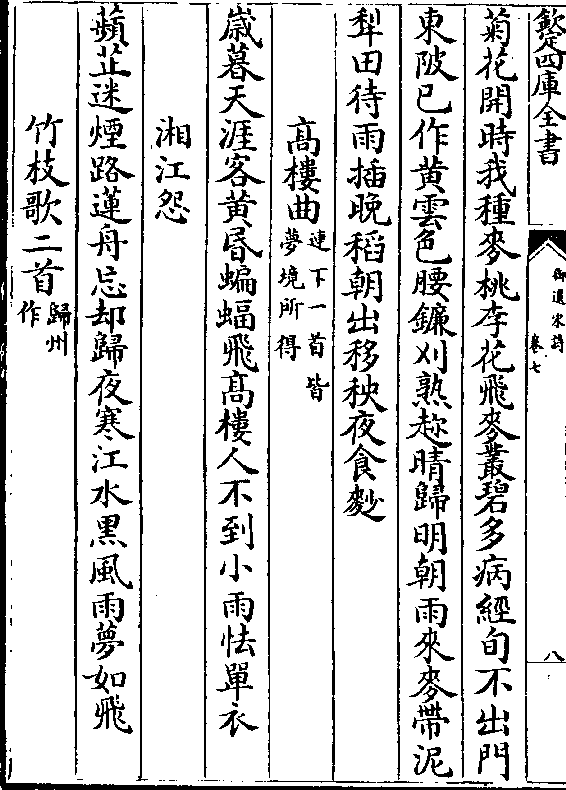 欽定四庫全書
御選宋詩
卷七
八
菊花開時我種麥桃李花飛麥叢碧多病經旬不出門
東陂已作黄雲色腰鐮刈熟趂晴歸明朝雨來麥帶泥
犁田待雨插晚稻朝出移秧夜食麨
高樓曲連下一首皆夢境所得
歳暮天涯客黄昬蝙蝠飛高樓人不到小雨怯單衣
湘江怨
蘋芷迷煙路蓮舟忘却歸夜寒江水黒風雨夢如飛
竹枝歌二首歸州作